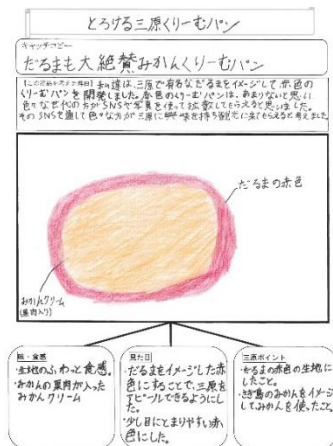 とろける三原くりーむパン
キャッチコピー
だるまも大絶賛みかんくりーむパン
私達は、三原で有名なだるまをイメージして、赤色の
くりーむパンを開発しました。赤色のくりーむパンは、あまりないと思い
色々な世代の方がSNSや写真を使って拡散してもらえると思いました。
そのSNSを通して色々な方が三原に興味を持ち観光に来てもらえると考えました
だるまの赤色
みかんクリーム
(果肉入り)
味・食感
・生地のふわっと食感。
・みかんの果肉が入った
みかんクリーム
見た目
・だるまをイメージした赤
色にすることで、三原を
アピールできるようにし
た。
・少し目にとまりやすい赤
色にした。
三原ポイント
・だるまの赤色の生地に
したこと。
のみかんをイメージ
してみかんを使ったこと。